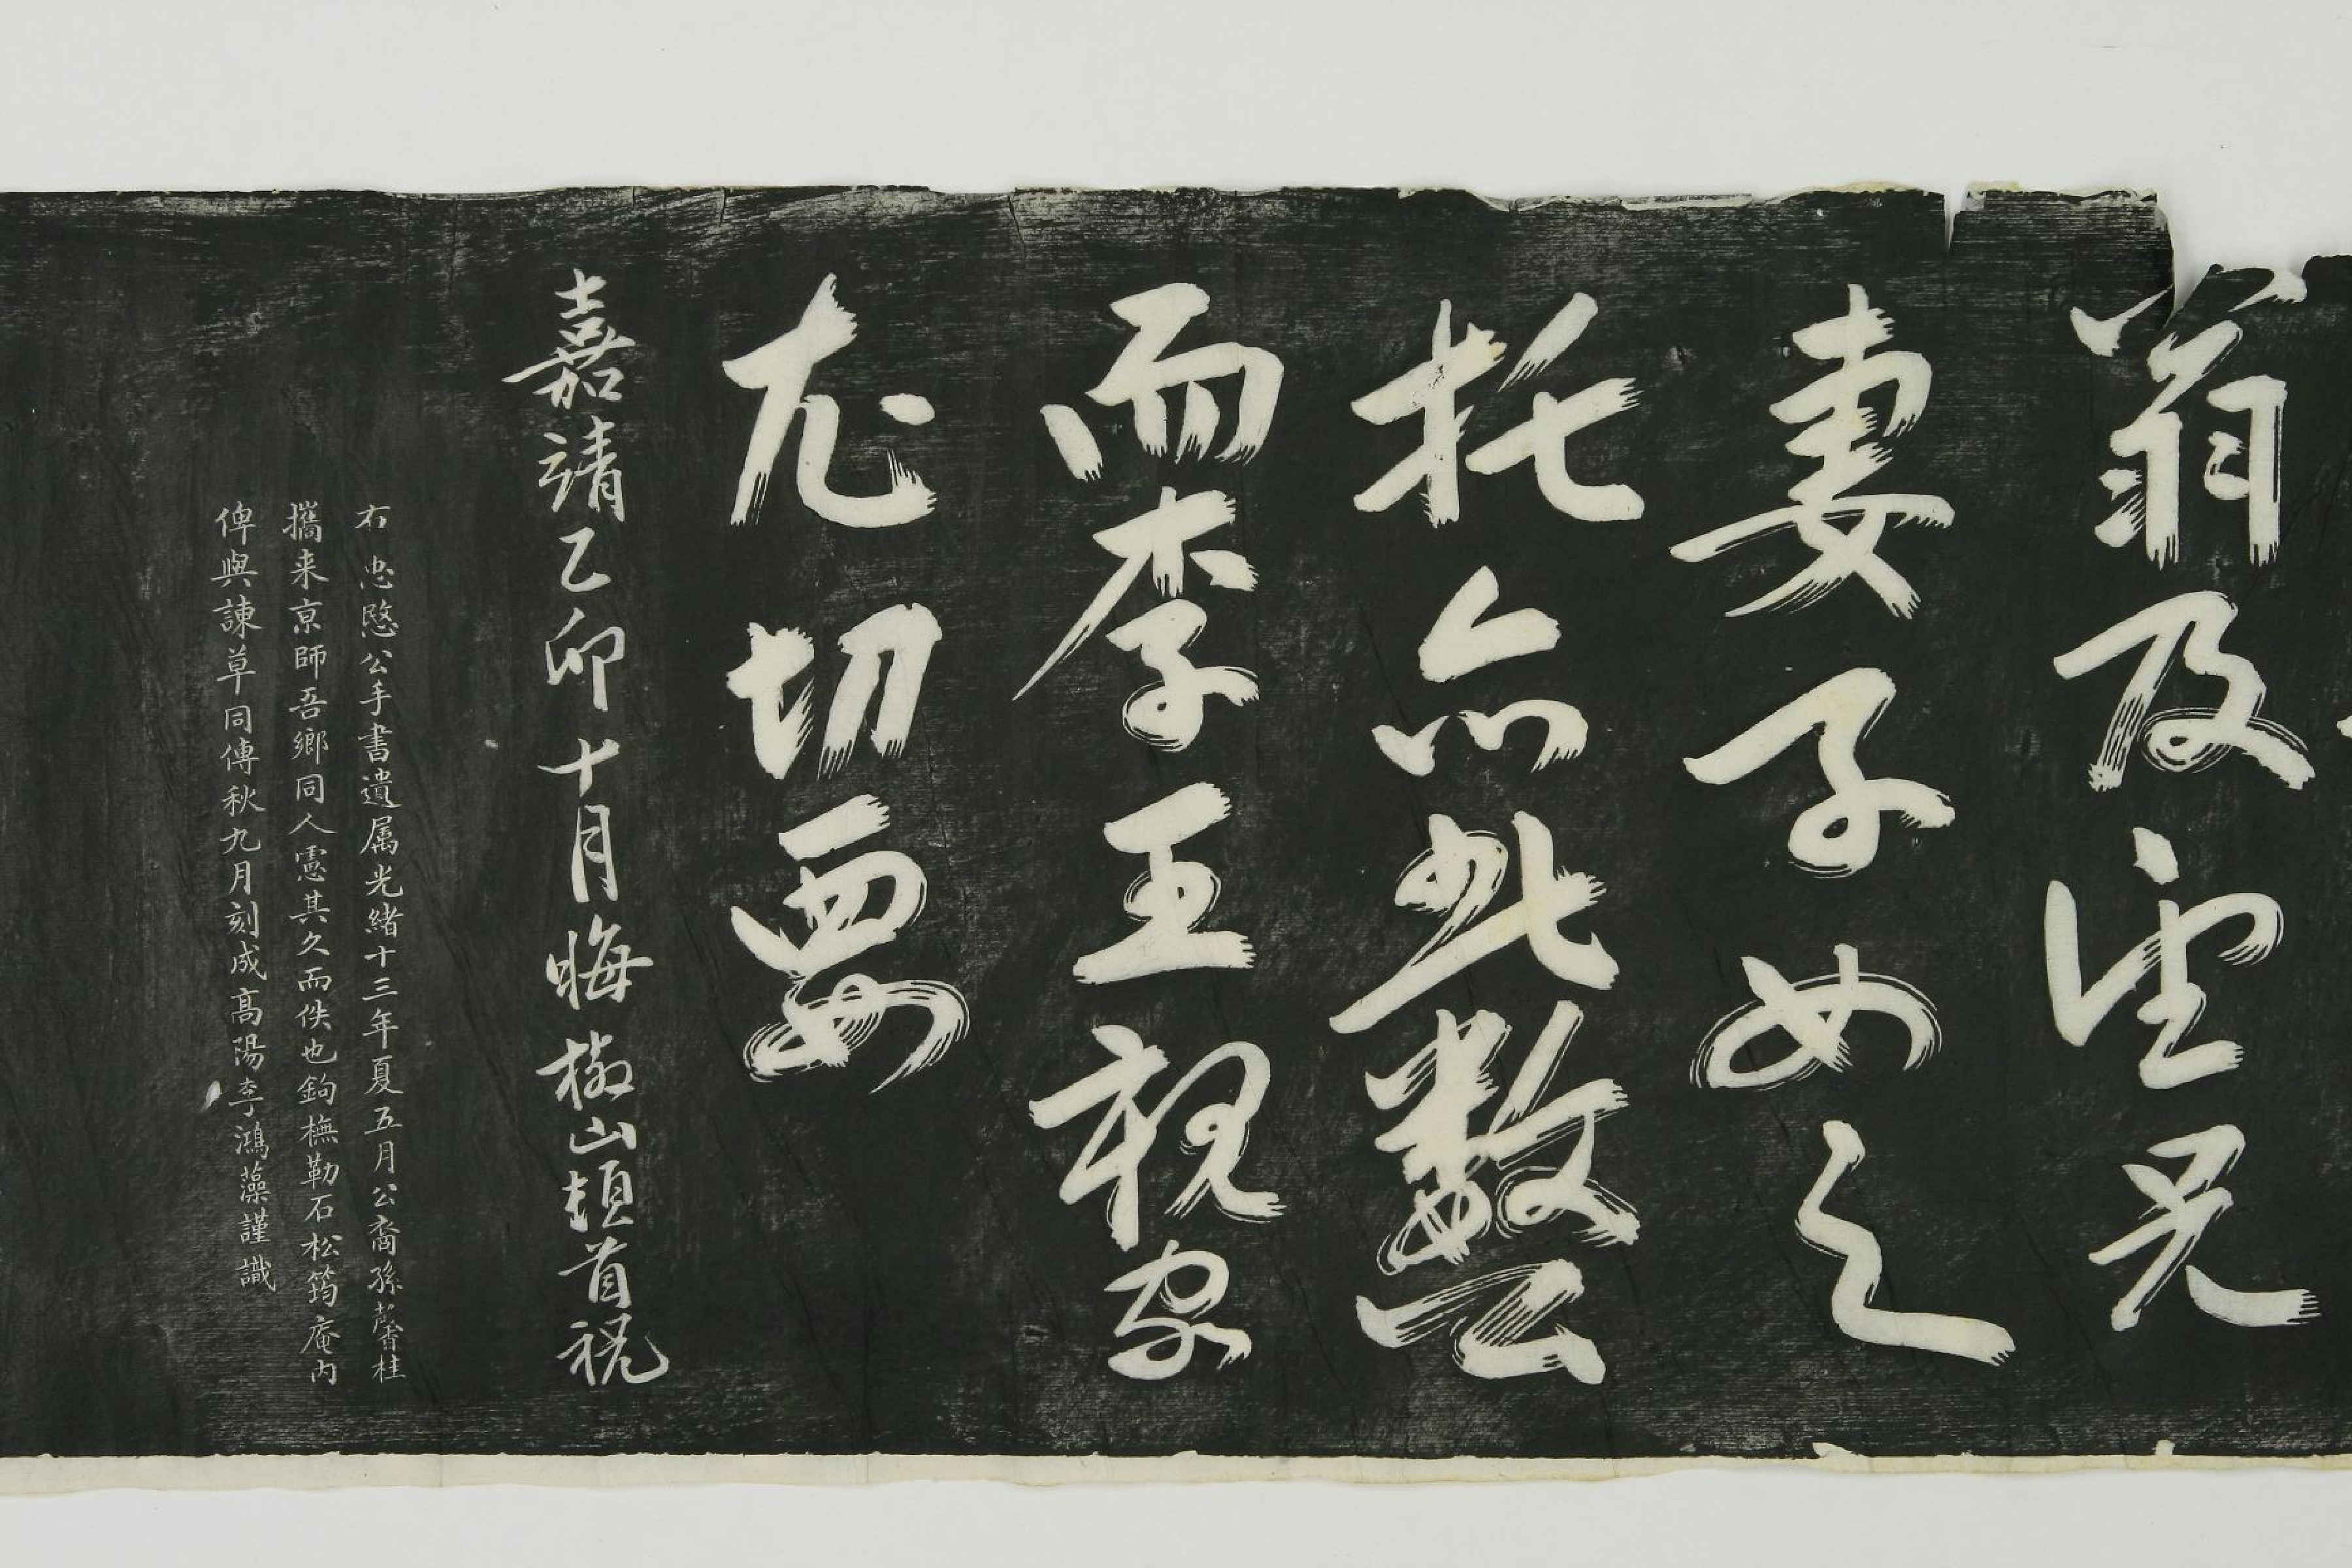 翁及望兄
妻子女之
托亦此數公
而李王親家
尤切要
嘉靖乙卯十月晦椒山頓首祝
右忠愍公手書遺属光緒十三年夏五月公裔孫馨桂
攜来京師吾鄉同人慮其久而佚也鉤橅勒石松筠庵内
俾與諫草同傳秋九月刻成高陽李鴻藻謹識